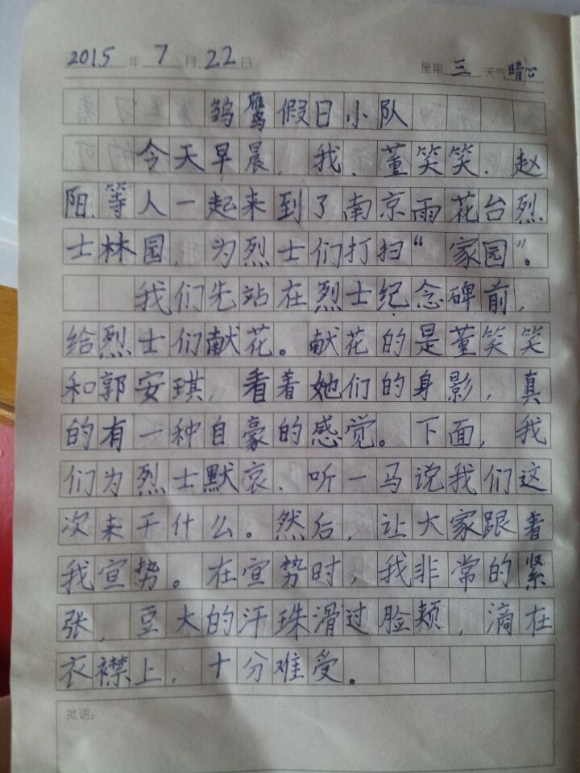 2015 年 7 月 22 日 星期 三 天气 晴心
雏鹰假日小队
今天早晨，我、董笑笑、赵
阳、等人一起来到了南京雨花台烈
士林园，为烈士们打扫“家园”。
我们先站在烈士纪念碑前，
给烈士们献花。献花的是董笑笑
和郭安琪，看着她们的身影，真
的有一种自豪的感觉。下面，我
们为烈士默哀、听一马说我们这
次来干什么。然后，让大家跟着
我宣势。在宣势时，我非常的紧
张，豆大的汗珠滑过脸颊，滴在
衣襟上，十分难受。
批语：